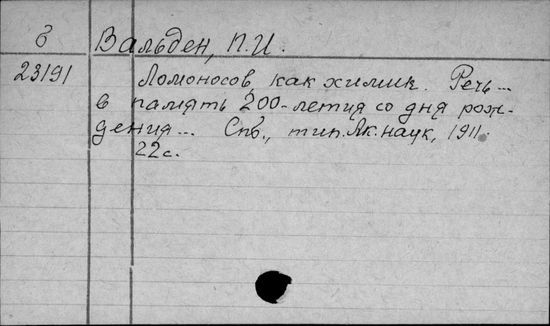 б Вальден, П.И.
23191 Ломоносов, как химик. Речь...
в память 200-летия со дня рож-
дения... Спб., тип. Ак. наук, 1911.
22с.